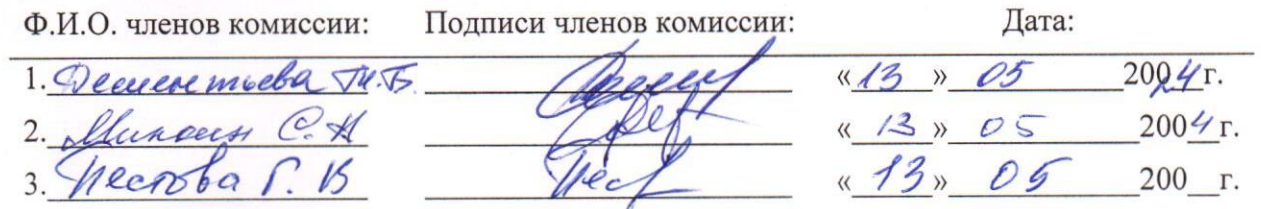 Ф.И.О. членов комиссии: Подписи членов комиссии: Дата:
1. Дементьева Т.Б. «13» 05 2024 г.
2. С.Н «13» 05 2004 г.
3. Пестова Г. В Пес «13» 05 200__г.